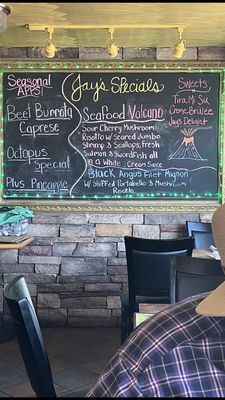 Seasonal
Apps!
Beet Burrata
Caprese
Octopus
Special
Plus Pineapple
Jay's Specials
Seafood Volcano
Sour Cherry Mushroom
Risotto w/ Seared Jumbo
Shrimp & Scallops, fresh
Salmon & Swordfish all
in a White Cream Sauce
Black Angus Filet Mignon
w/ Stuffed Portabello & Mushroom
Risotto
Sweets
Tira Mi Su
Creme Brulee
Jay's Delight